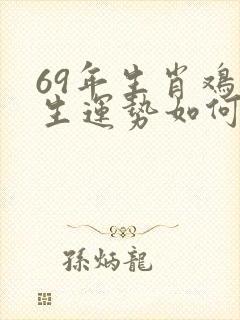 69年生肖鸡
生運势如何
孫炳龍